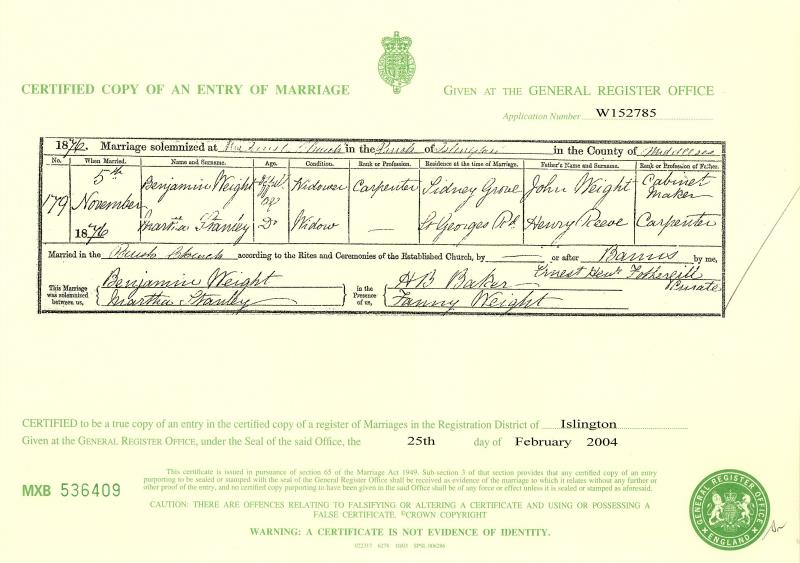 CERTIFIED COPY OF AN ENTRY OF MARRIAGE
GIVEN AT THE GENERAL REGISTER OFFICE
Application Number W152785
1876. Marriage solemnized at the Church in the Parish of Islington in the County of Middlesex
No. When Married. Name and Surname. Age. Condition. Rank or Profession. Residence at the time of Marriage. Father's Name and Surname. Rank or Profession of Father.
179 5th November 1876
Benjamin Weight Widower Carpenter Sidney Grove John Weight Cabinet Maker
Martha Stanley Do Widow — St Georges Rd Henry Reeve Carpenter
Married in the Parish Church according to the Rites and Ceremonies of the Established Church, by — or after Banns by me,
Ernest Hen. Fothergill
Curate
This Marriage was solemnized between us,
Benjamin Weight
Martha Stanley
in the Presence of us,
H B Baker
Fanny Weight
CERTIFIED to be a true copy of an entry in the certified copy of a register of Marriages in the Registration District of Islington
Given at the GENERAL REGISTER OFFICE, under the Seal of the said Office, the 25th day of February 2004
MXB 536409
This certificate is issued in pursuance of section 65 of the Marriage Act 1949. Sub-section 3 of that section provides that any certified copy of an entry
purporting to be sealed or stamped with the seal of the General Register Office shall be received as evidence of the marriage to which it relates without any further or
other proof of the entry, and no certified copy purporting to have been given in the said Office shall be of any force or effect unless it is sealed or stamped as aforesaid.
CAUTION: THERE ARE OFFENCES RELATING TO FALSIFYING OR ALTERING A CERTIFICATE AND USING OR POSSESSING A
FALSE CERTIFICATE. ©CROWN COPYRIGHT
WARNING: A CERTIFICATE IS NOT EVIDENCE OF IDENTITY.
GENERAL REGISTER OFFICE
ENGLAND